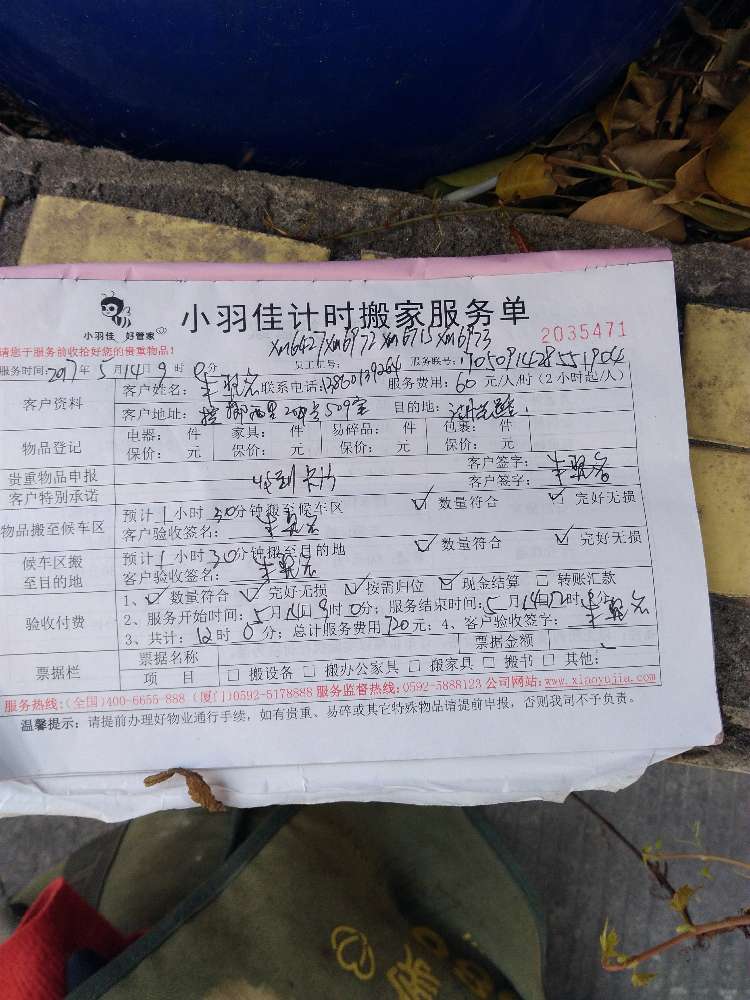 小羽佳 好管家
小羽佳计时搬家服务单
2035471
请您于服务前收拾好您的贵重物品!
xm6427 xm6972 xm6715 xm6973
服务时间:2017年5月14日9时0分 员工工号: 服务账号:
客户资料
客户姓名: 联系电话: 服务费用:60元/人/时(2小时起/人)
客户地址: 509室 目的地:
物品登记
电器: 件 家具: 件 易碎品: 件 包裹: 件
保价: 元 保价: 元 保价: 元 保价: 元
贵重物品申报 客户签字:
客户特别承诺 客户签字:
物品搬至候车区
预计1小时30分钟搬至候车区 ✓数量符合 ✓完好无损
客户验收签名:
候车区搬至目的地
预计1小时30分钟搬至目的地 ✓数量符合 ✓完好无损
客户验收签名:
验收付费
1、✓数量符合 ✓完好无损 ✓按需归位 ✓现金结算 □转账汇款
2、服务开始时间:5月14日9时0分;服务结束时间:5月14日12时 分
3、共计:12时0分;总计服务费用720元;4、客户验收签字:
票据栏
票据名称 票据金额
项 目 □搬设备 □搬办公家具 □搬家具 □搬书 □其他:
服务热线:(全国)400-6655-888 (厦门)0592-5178888 服务监督热线:0592-5888123 公司网站:www.xiaoyujia.com
温馨提示:请提前办理好物业通行手续,如有贵重、易碎或其它特殊物品请提前申报,否则我司不予负责。